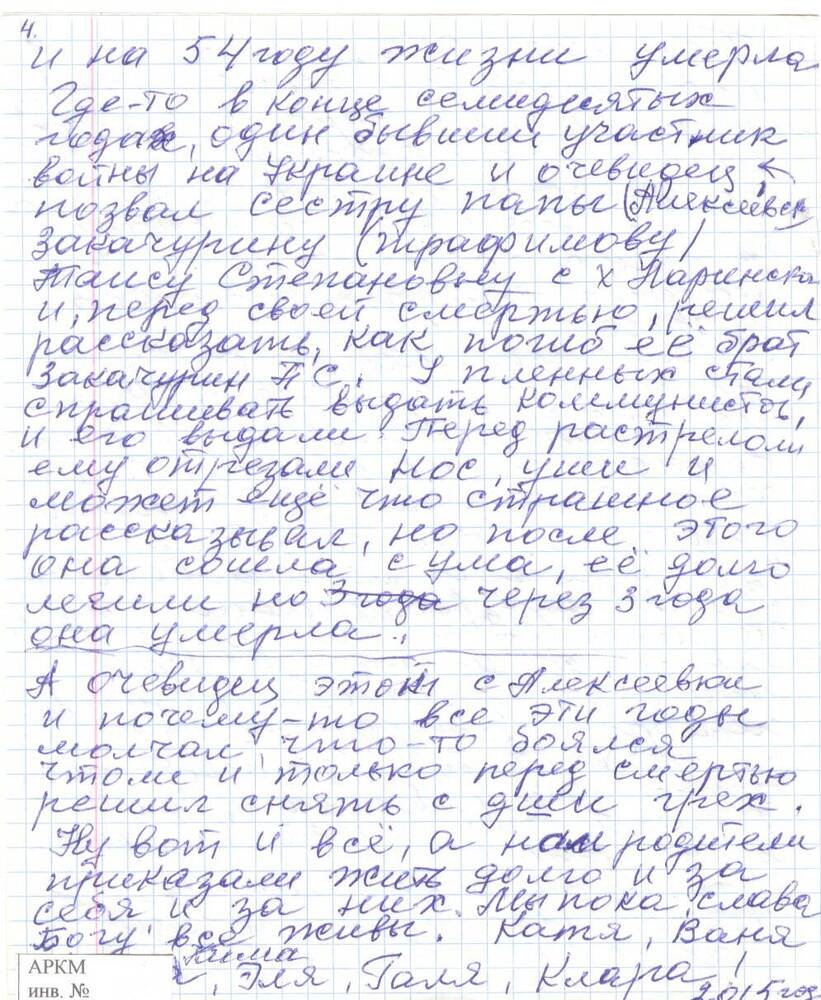 4.
и на 54 году жизни умерла
Где-то в конце семидесятых
годах, один бывший участник
войны на Украине и очевидец ←
позвал сестру папы (Алексеевск
Закачурину (трафимову)
Таису Степановну с х Паринска
и, перед своей смертью, решил
рассказать, как погиб её брат
Закачурин П С. У пленных стали
спрашивать выдать коммунистов,
и его выдали. Перед растрелом
ему отрезали нос, уши и
может ещё что страшное
рассказывал, но после этого
она сошла с ума, её долго
лечили но 3 года через 3 года
она умерла.
А очевидец этот с Алексеевки
и почему-то все эти годы
молчал, что-то боялся
чтоли и только перед смертью
решил снять с дши грех.
Ну вот и всё, а нам родители
приказали жить долго и за
себя и за них. Мы пока, слава
Богу все живы. Катя, Ваня
Рима
, Эля, Галя, Клара!
2015 год
АРКМ
инв. №